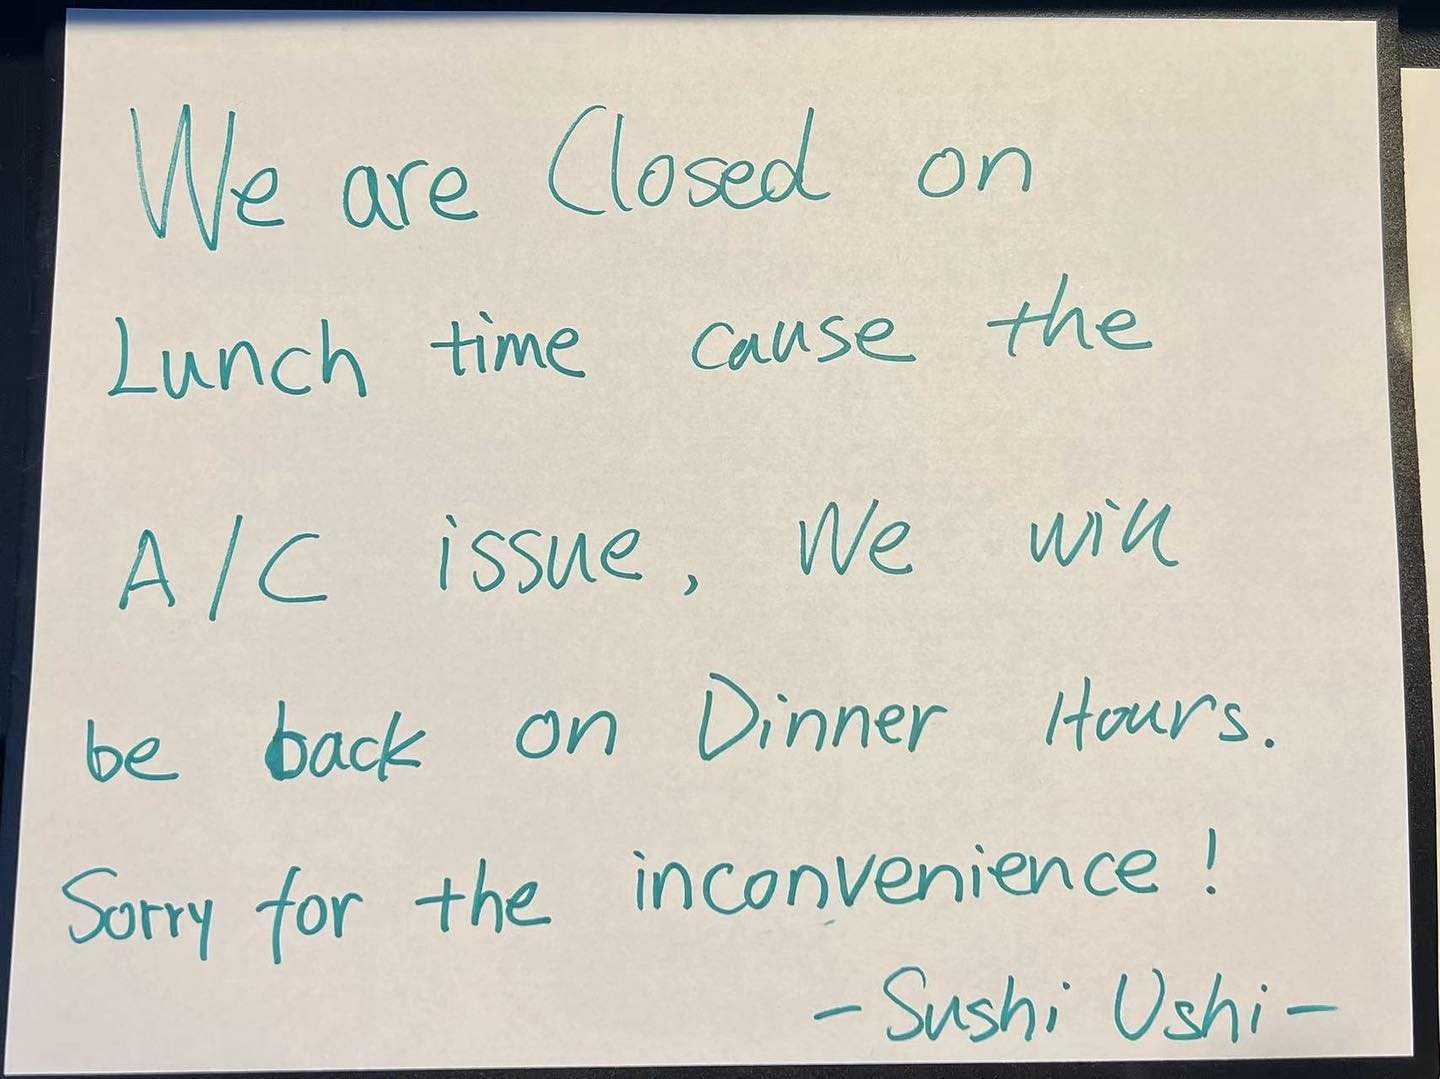 We are Closed on
Lunch time cause the
A/C issue, We will
be back on Dinner Hours.
Sorry for the inconvenience!
- Sushi Ushi -